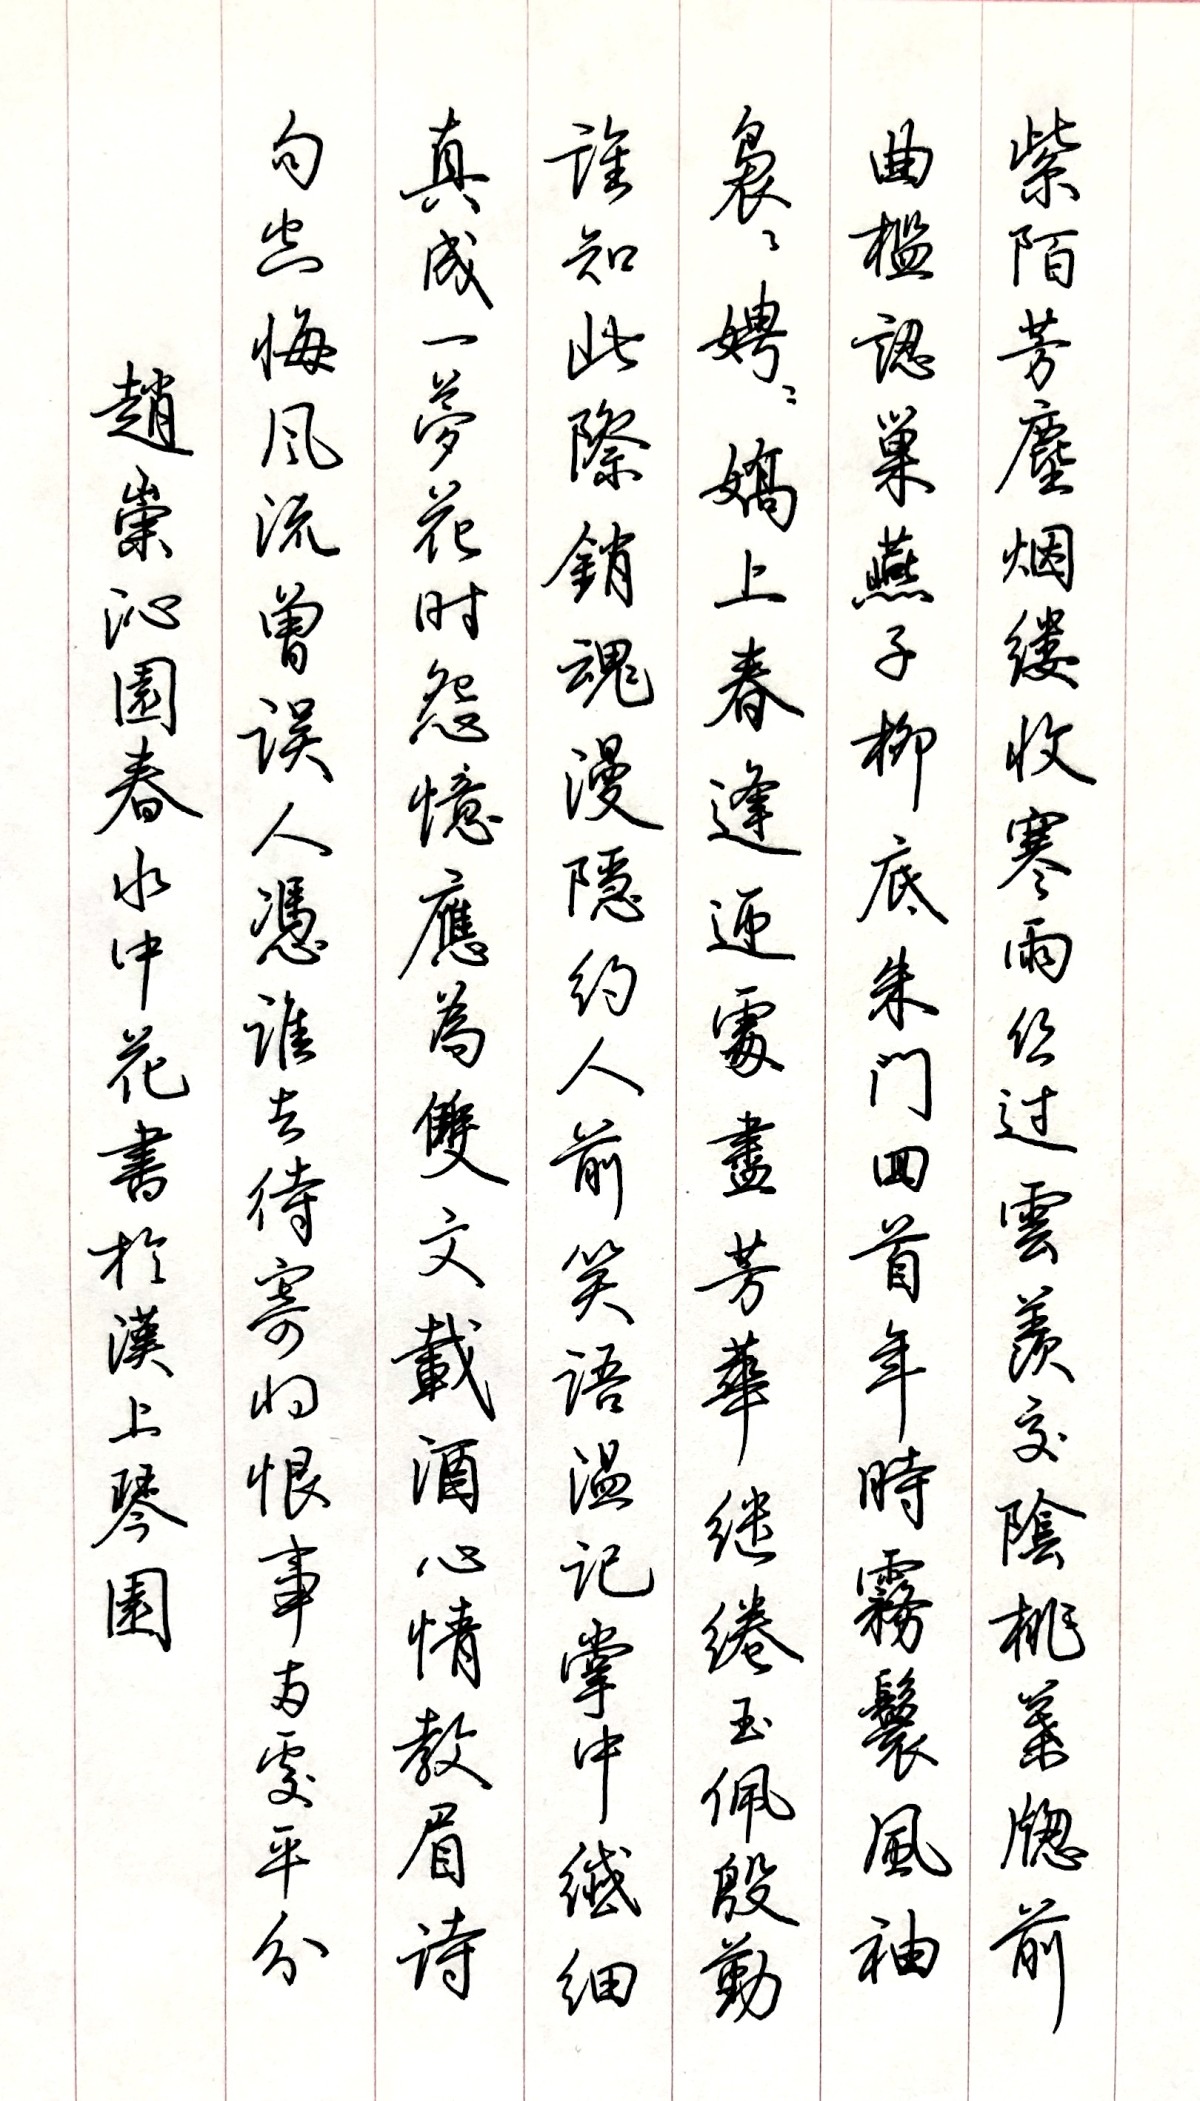 紫陌芳塵烟缕收寒雨总过雲羨交陰桃葉牕前
曲檻認巢燕子柳底朱門回首年時霧鬢風袖
裊〻娉〻嬌上春逢迎處盡芳華繾綣玉佩殷勤
誰知此際銷魂漫隱約人前笑語温记掌中纖细
真成一夢花时怨憶應為雙文載酒心情教眉诗
句空悔风流曾误人憑誰去待寄归恨事与處平分
趙崇沁園春水中花書於漢上琴園